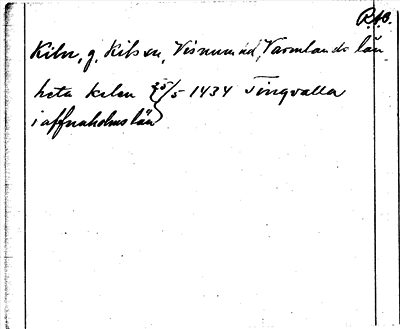 R.A.O.
Kiln, g. Kilsen, Visnums hd, Värmlands län
heta kilen 25/5 1434 Tingvalla
i affnaholms län